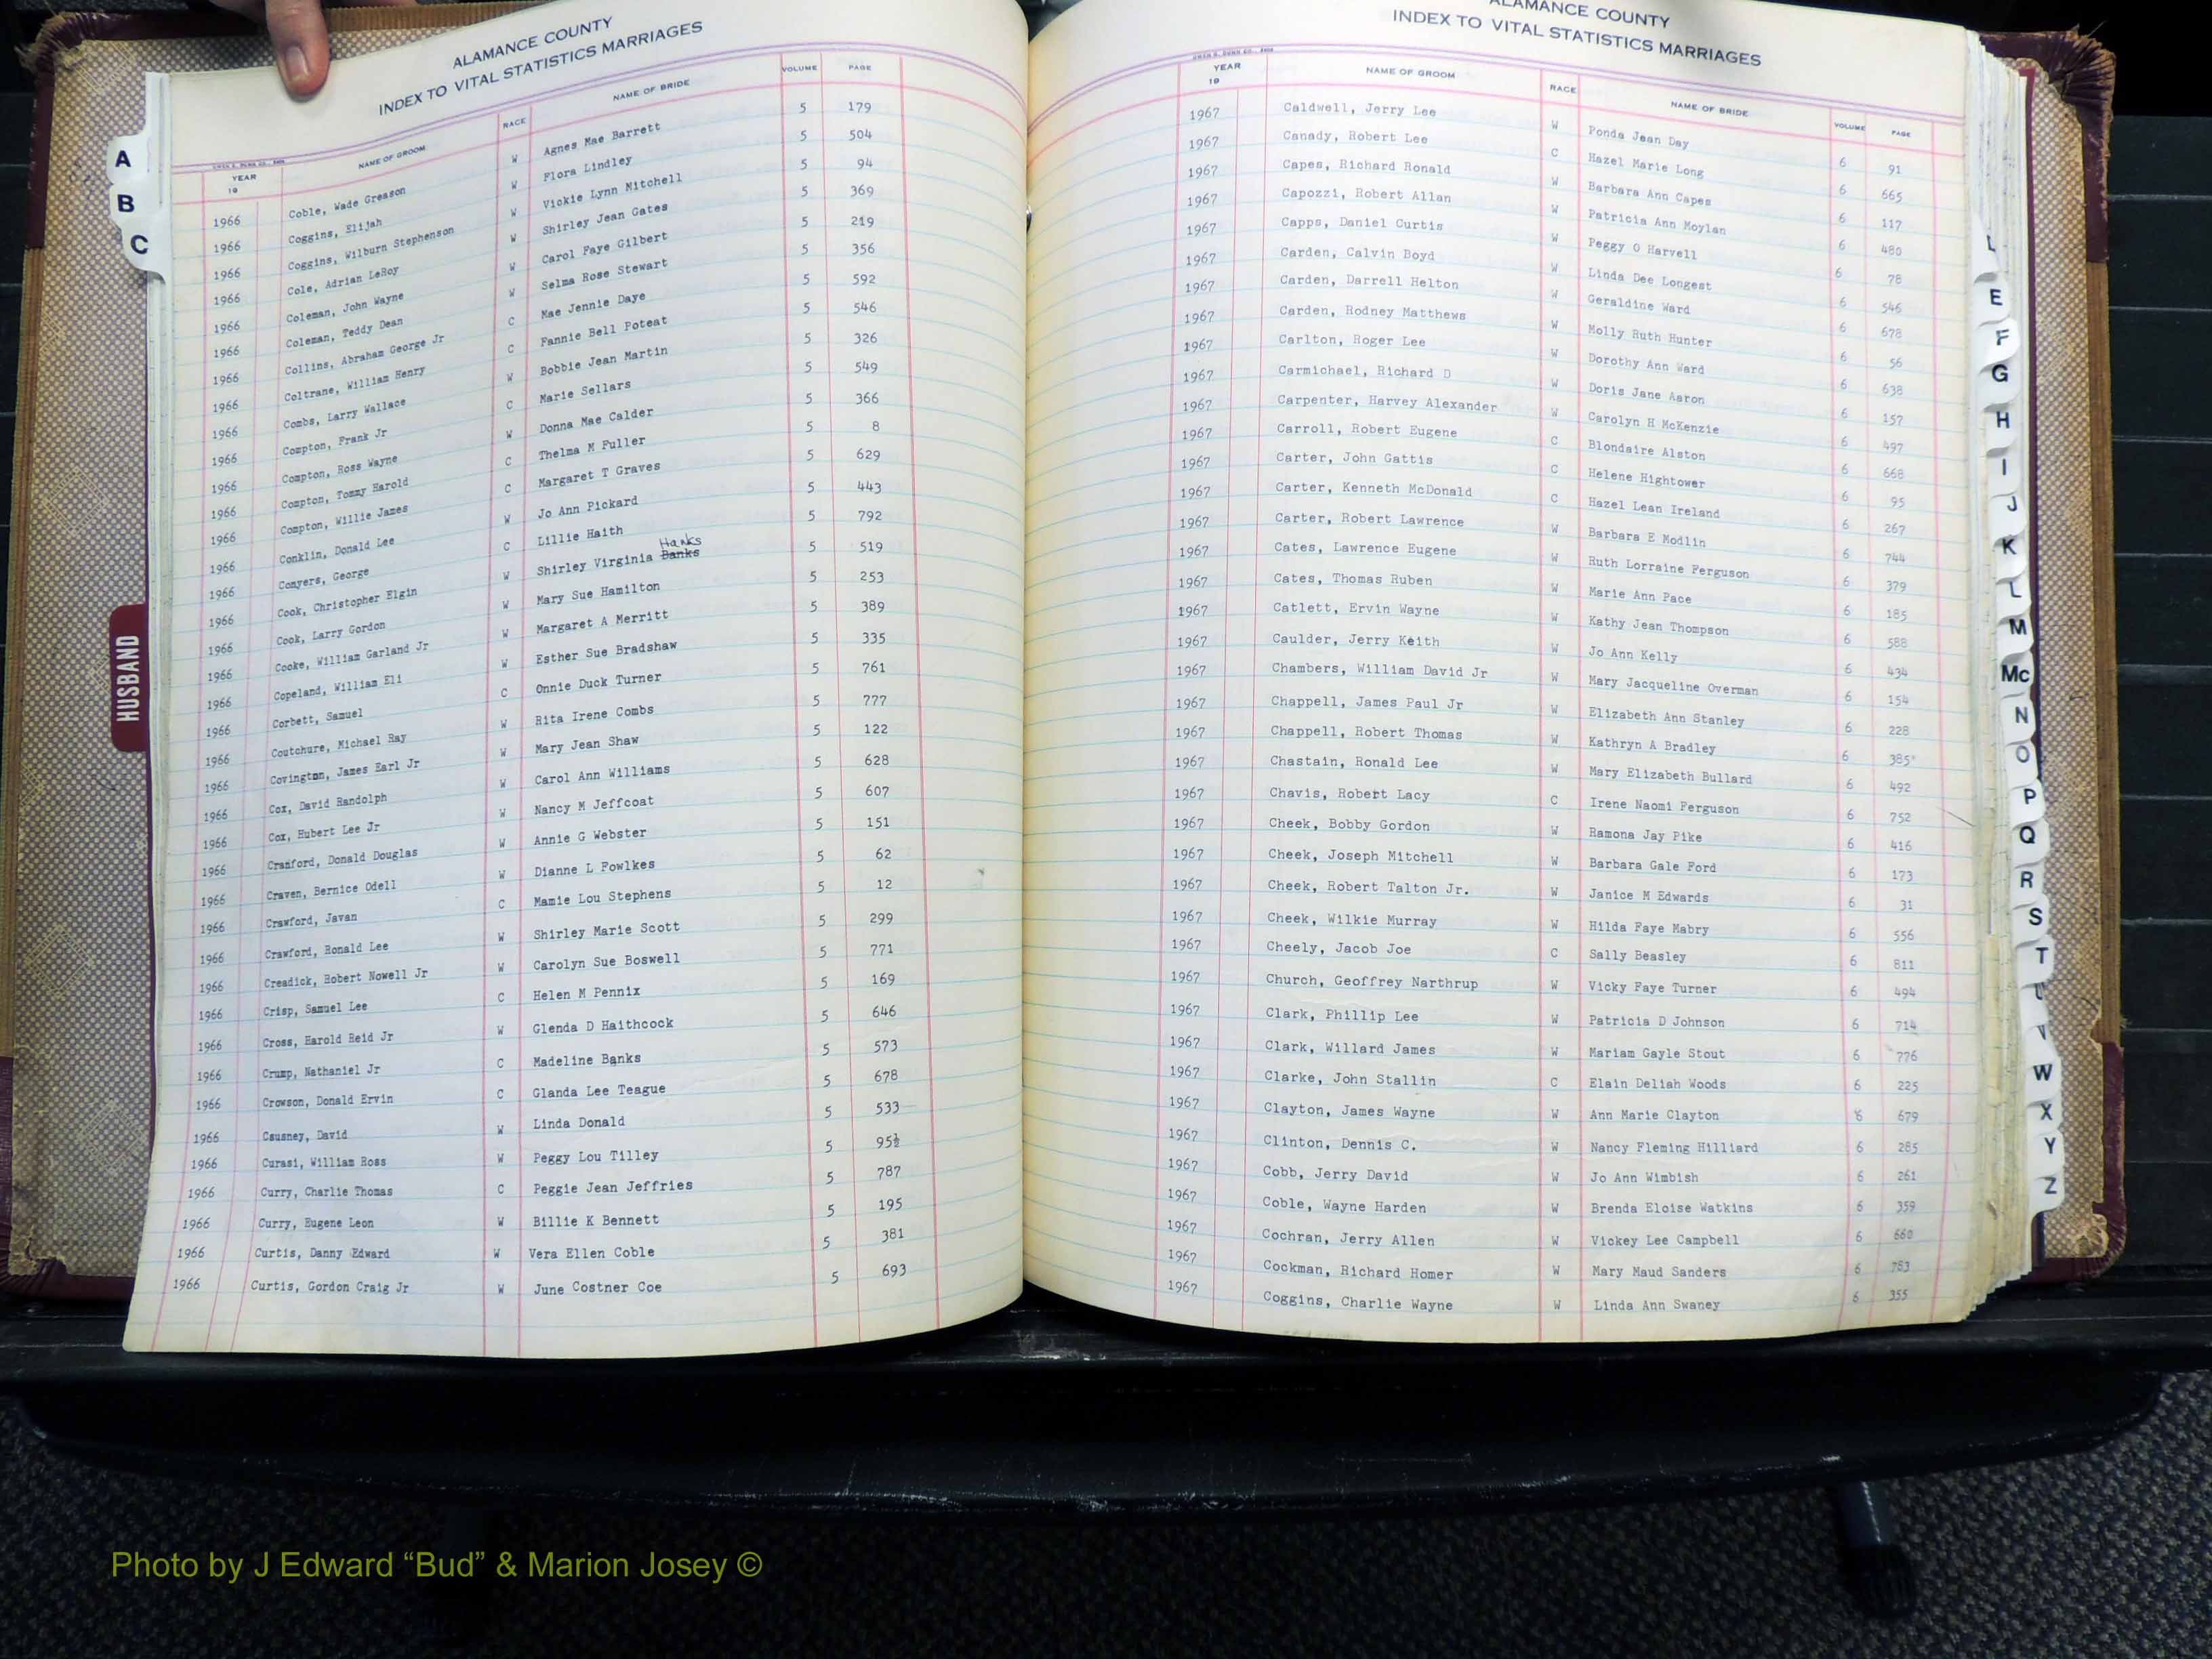 ALAMANCE COUNTY
INDEX TO VITAL STATISTICS MARRIAGES
YEAR 19 NAME OF GROOM RACE NAME OF BRIDE VOLUME PAGE
1966 Coble, Wade Greason W Agnes Mae Barrett 5 179
1966 Coggins, Elijah W Flora Lindley 5 504
1966 Coggins, Wilburn Stephenson W Vickie Lynn Mitchell 5 94
1966 Cole, Adrian LeRoy W Shirley Jean Gates 5 369
1966 Coleman, John Wayne W Carol Faye Gilbert 5 219
1966 Coleman, Teddy Dean W Selma Rose Stewart 5 356
1966 Collins, Abraham George Jr C Mae Jennie Daye 5 592
1966 Coltrane, William Henry C Fannie Bell Poteat 5 546
1966 Combs, Larry Wallace W Bobbie Jean Martin 5 326
1966 Compton, Frank Jr C Marie Sellars 5 549
1966 Compton, Ross Wayne W Donna Mae Calder 5 366
1966 Compton, Tommy Harold C Thelma M Fuller 5 8
1966 Compton, Willie James C Margaret T Graves 5 629
1966 Conklin, Donald Lee W Jo Ann Pickard 5 443
1966 Conyers, George C Lillie Haith 5 792
1966 Cook, Christopher Elgin W Shirley Virginia Banks Hanks 5 519
1966 Cook, Larry Gordon W Mary Sue Hamilton 5 253
1966 Cooke, William Garland Jr W Margaret A Merritt 5 389
1966 Copeland, William Eli W Esther Sue Bradshaw 5 335
1966 Corbett, Samuel C Onnie Duck Turner 5 761
1966 Coutchure, Michael Ray W Rita Irene Combs 5 777
1966 Covington, James Earl Jr W Mary Jean Shaw 5 122
1966 Cox, David Randolph W Carol Ann Williams 5 628
1966 Cox, Hubert Lee Jr W Nancy M Jeffcoat 5 607
1966 Cranford, Donald Douglas W Annie G Webster 5 151
1966 Craven, Bernice Odell W Dianne L Fowlkes 5 62
1966 Crawford, Javan C Mamie Lou Stephens 5 12
1966 Crawford, Ronald Lee W Shirley Marie Scott 5 299
1966 Creadick, Robert Nowell Jr W Carolyn Sue Boswell 5 771
1966 Crisp, Samuel Lee C Helen M Pennix 5 169
1966 Cross, Harold Reid Jr W Glenda D Haithcock 5 646
1966 Crump, Nathaniel Jr C Madeline Banks 5 573
1966 Crowson, Donald Ervin C Glanda Lee Teague 5 678
1966 Csusney, David W Linda Donald 5 533
1966 Curasi, William Ross W Peggy Lou Tilley 5 95½
1966 Curry, Charlie Thomas C Peggie Jean Jeffries 5 787
1966 Curry, Eugene Leon W Billie K Bennett 5 195
1966 Curtis, Danny Edward W Vera Ellen Coble 5 381
1966 Curtis, Gordon Craig Jr W June Costner Coe 5 693
A
B
C
HUSBAND
ALAMANCE COUNTY
INDEX TO VITAL STATISTICS MARRIAGES
YEAR 19 NAME OF GROOM RACE NAME OF BRIDE VOLUME PAGE
1967 Caldwell, Jerry Lee W Ponda Jean Day 6 91
1967 Canady, Robert Lee C Hazel Marie Long 6 665
1967 Capes, Richard Ronald W Barbara Ann Capes 6 117
1967 Capozzi, Robert Allan W Patricia Ann Moylan 6 480
1967 Capps, Daniel Curtis W Peggy O Harvell 6 78
1967 Carden, Calvin Boyd W Linda Dee Longest 6 546
1967 Carden, Darrell Helton W Geraldine Ward 6 678
1967 Carden, Rodney Matthews W Molly Ruth Hunter 6 56
1967 Carlton, Roger Lee W Dorothy Ann Ward 6 638
1967 Carmichael, Richard D W Doris Jane Aaron 6 157
1967 Carpenter, Harvey Alexander W Carolyn H McKenzie 6 497
1967 Carroll, Robert Eugene C Blondaire Alston 6 668
1967 Carter, John Gattis C Helene Hightower 6 95
1967 Carter, Kenneth McDonald C Hazel Lean Ireland 6 267
1967 Carter, Robert Lawrence W Barbara E Modlin 6 744
1967 Cates, Lawrence Eugene W Ruth Lorraine Ferguson 6 379
1967 Cates, Thomas Ruben W Marie Ann Pace 6 185
1967 Catlett, Ervin Wayne W Kathy Jean Thompson 6 588
1967 Caulder, Jerry Keith W Jo Ann Kelly 6 434
1967 Chambers, William David Jr W Mary Jacqueline Overman 6 154
1967 Chappell, James Paul Jr W Elizabeth Ann Stanley 6 228
1967 Chappell, Robert Thomas W Kathryn A Bradley 6 385
1967 Chastain, Ronald Lee W Mary Elizabeth Bullard 6 492
1967 Chavis, Robert Lacy C Irene Naomi Ferguson 6 752
1967 Cheek, Bobby Gordon W Ramona Jay Pike 6 416
1967 Cheek, Joseph Mitchell W Barbara Gale Ford 6 173
1967 Cheek, Robert Talton Jr. W Janice M Edwards 6 31
1967 Cheek, Wilkie Murray W Hilda Faye Mabry 6 556
1967 Cheely, Jacob Joe C Sally Beasley 6 811
1967 Church, Geoffrey Northrup W Vicky Faye Turner 6 494
1967 Clark, Phillip Lee W Patricia D Johnson 6 714
1967 Clark, Willard James W Mariam Gayle Stout 6 776
1967 Clarke, John Stallin C Elain Deliah Woods 6 225
1967 Clayton, James Wayne W Ann Marie Clayton 6 679
1967 Clinton, Dennis C. W Nancy Fleming Hilliard 6 285
1967 Cobb, Jerry David W Jo Ann Wimbish 6 261
1967 Coble, Wayne Harden W Brenda Eloise Watkins 6 359
1967 Cochran, Jerry Allen W Vickey Lee Campbell 6 660
1967 Cockman, Richard Homer W Mary Maud Sanders 6 783
1967 Coggins, Charlie Wayne W Linda Ann Swaney 6 355
E
F
G
H
I
J
K
L
M
Mc
N
O
P
Q
R
S
T
U
V
W
X
Y
Z
Photo by J Edward “Bud” & Marion Josey ©